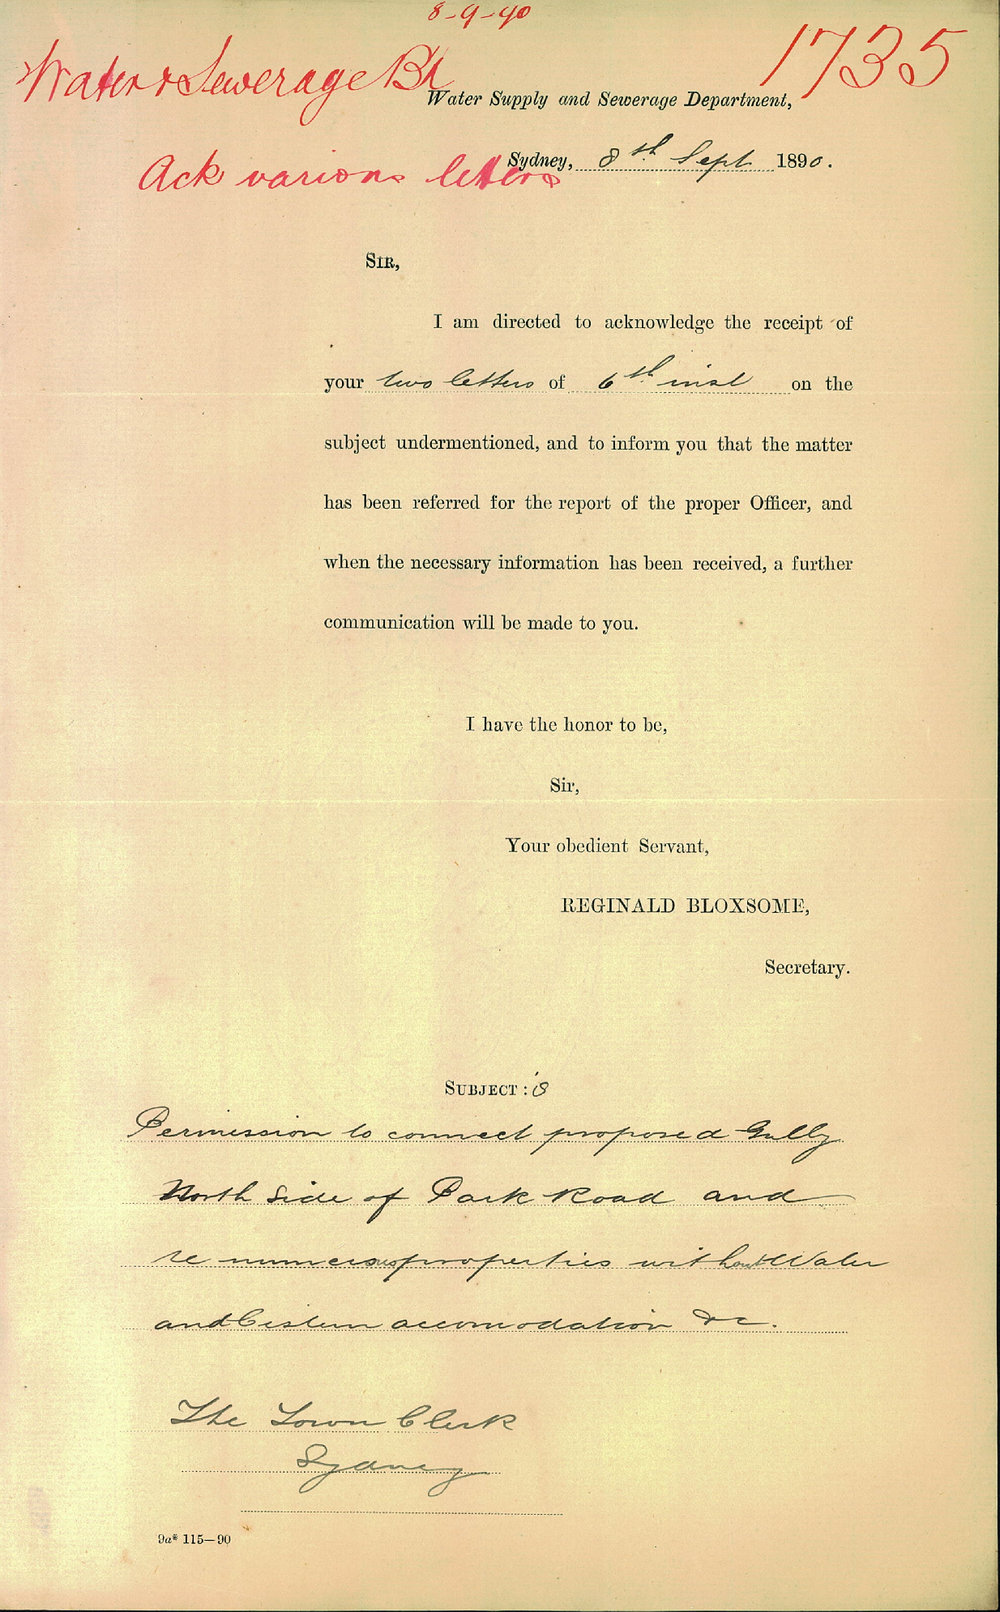 8-9-90
1735
Water & Sewerage Bd
Water Supply and Sewerage Department,
Ack various letters
Sydney, 8th Sept 1890.
SIR,
I am directed to acknowledge the receipt of
your two letters of 6th inst on the
subject undermentioned, and to inform you that the matter
has been referred for the report of the proper Officer, and
when the necessary information has been received, a further
communication will be made to you.
I have the honor to be,
Sir,
Your obedient Servant,
REGINALD BLOXSOME,
Secretary.
SUBJECT:s
Permission to connect proposed Gully
North Side of Park Road and
re numerous properties without Water
and Cistern accomodation &c.
The Town Clerk
Sydney
9a* 115—90